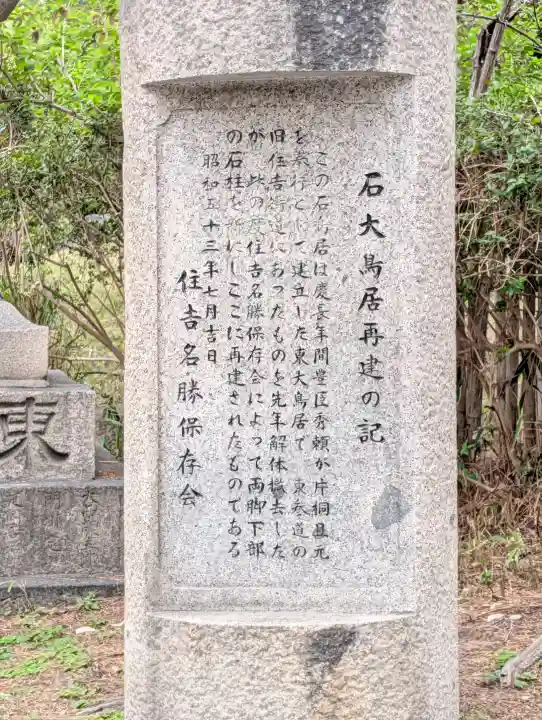 石大鳥居再建の記
この石鳥居は慶長年間豊臣秀頼が片桐且元
を奉行として建立した東大鳥居で 東参道の
旧住吉街道にあったものを先年解体撤去した
が 此の度住吉名勝保存会によって両脚下部
の石柱を にしここに再建されたものである
昭和五十三年七月吉日
住吉名勝保存会
東